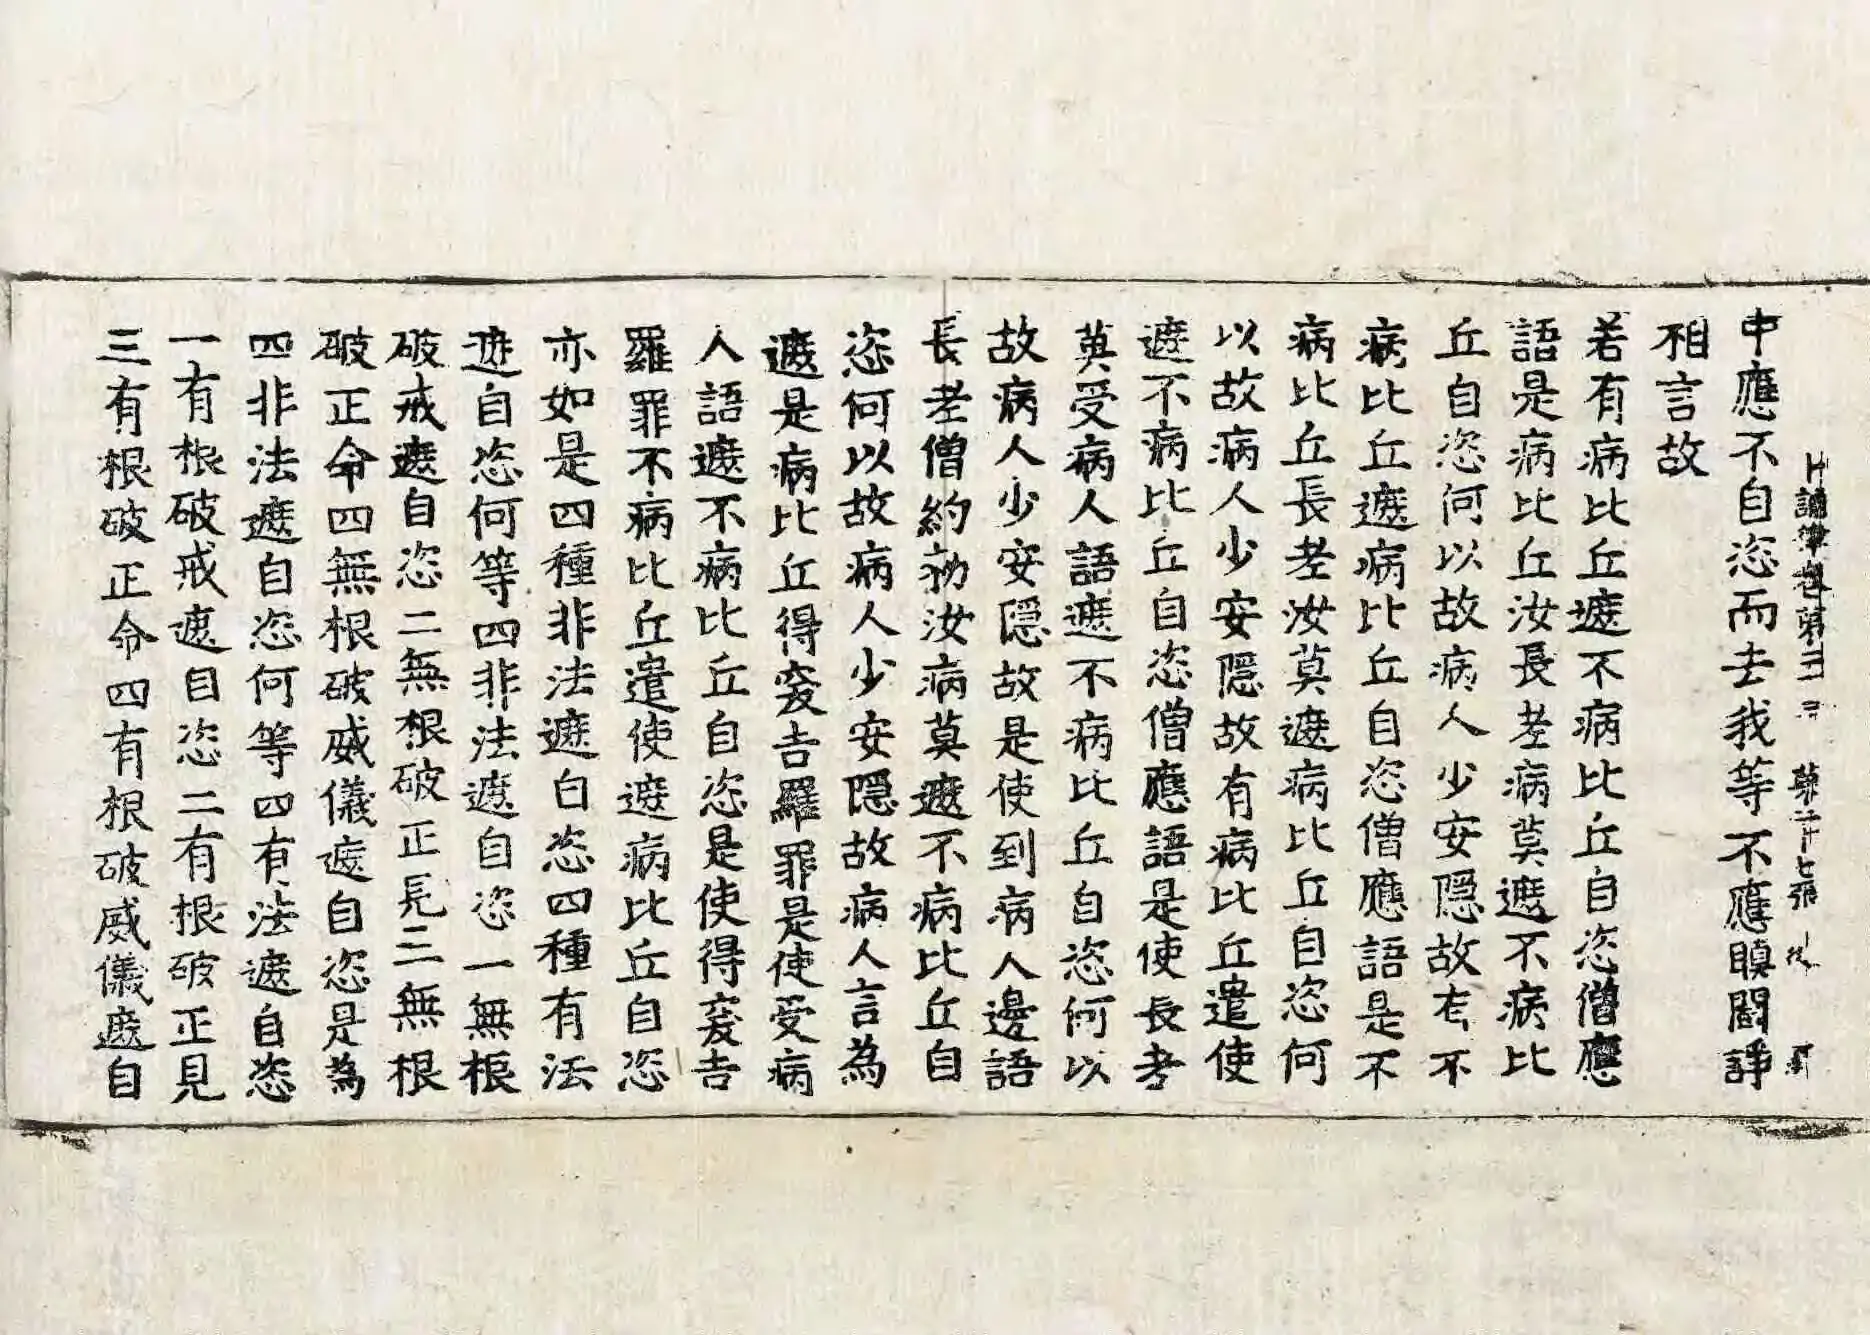 十誦律卷第二十三 第二十七張 
中應不自恣而去我等不應瞋鬪諍
相言故
若有病比丘遮不病比丘自恣僧應
語是病比丘汝長老病莫遮不病比
丘自恣何以故病人少安隱故有不
病比丘遮病比丘自恣僧應語是不
病比丘長老汝莫遮病比丘自恣何
以故病人少安隱故有病比丘遣使
遮不病比丘自恣僧應語是使長老
莫受病人語遮不病比丘自恣何以
故病人少安隱故是使到病人邊語
長老僧約勑汝病莫遮不病比丘自
恣何以故病人少安隱故病人言為
遮是病比丘得突吉羅罪是使受病
人語遮不病比丘自恣是使得突吉
羅罪不病比丘遣使遮病比丘自恣
亦如是四種非法遮自恣四種有法
遮自恣何等四非法遮自恣一無根
破戒遮自恣二無根破正見三無根
破正命四無根破威儀遮自恣是為
四非法遮自恣何等四有法遮自恣
一有根破戒遮自恣二有根破正見
三有根破正命四有根破威儀遮自